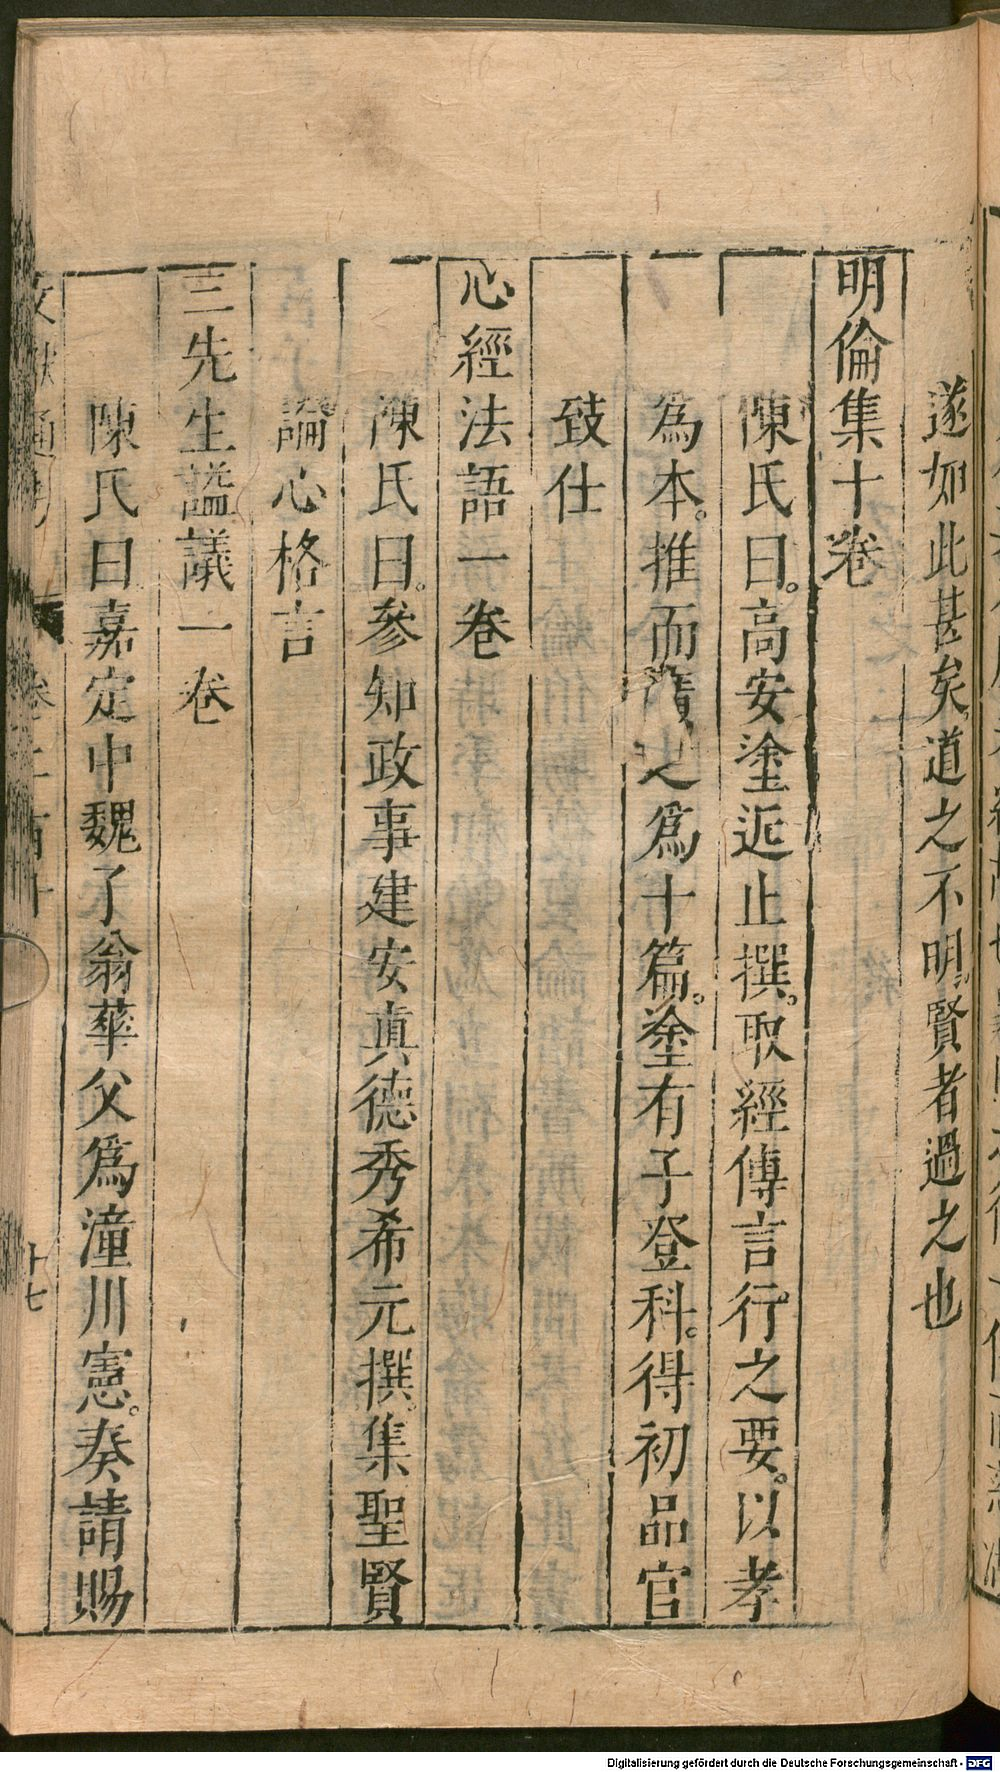 遂如此甚矣道之不明賢者過之也
明倫集十卷
陳氏曰。高安塗近止撰。取經傳言行之要。以孝
為本。推而廣之爲十篇。塗有子登科。得初品官
致仕
心經法語一卷
陳氏曰。參知政事建安真德秀希元撰集聖賢
論心格言
三先生謚議一卷
陳氏曰嘉定中魏了翁華父爲潼川憲。奏請賜
十七
Digitalisierung gefördert durch die Deutsche Forschungsgemeinschaft - DFG